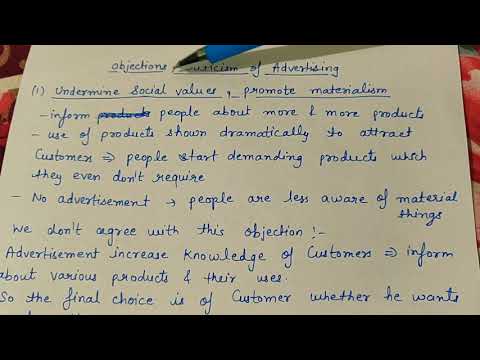 Objections criticism of Advertising
(1) Undermine Social values, promote materialism
- inform people about more & more products
- use of products shown dramatically to attract
Customers ⇒ people start demanding products which
they even don't require
- No advertisement → people are less aware of material
things
We don't agree with this objection :-
Advertisement increase knowledge of Customers ⇒ inform
about various products & their uses.
So the final choice is of Customer whether he wants